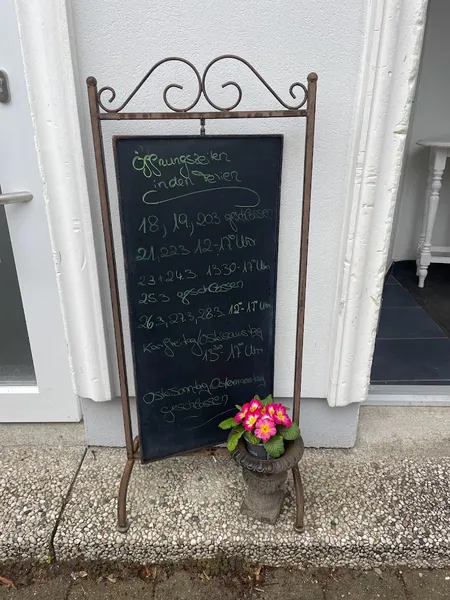 Öffnungszeiten
in den Ferien
18, 19, 20.3 geschlossen
21, 22.3 12-17 Uhr
23+24.3 13.30-17 Uhr
25.3 geschlossen
26.3, 27.3, 28.3 12-17 Uhr
Karfreitag/Ostersamstag
13³⁰-17 Uhr
Ostersonntag/Ostermontag
geschlossen